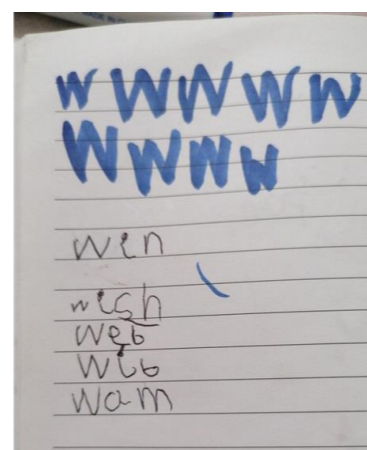 w W W W W
W W W W
win
wish
web
wib
wam